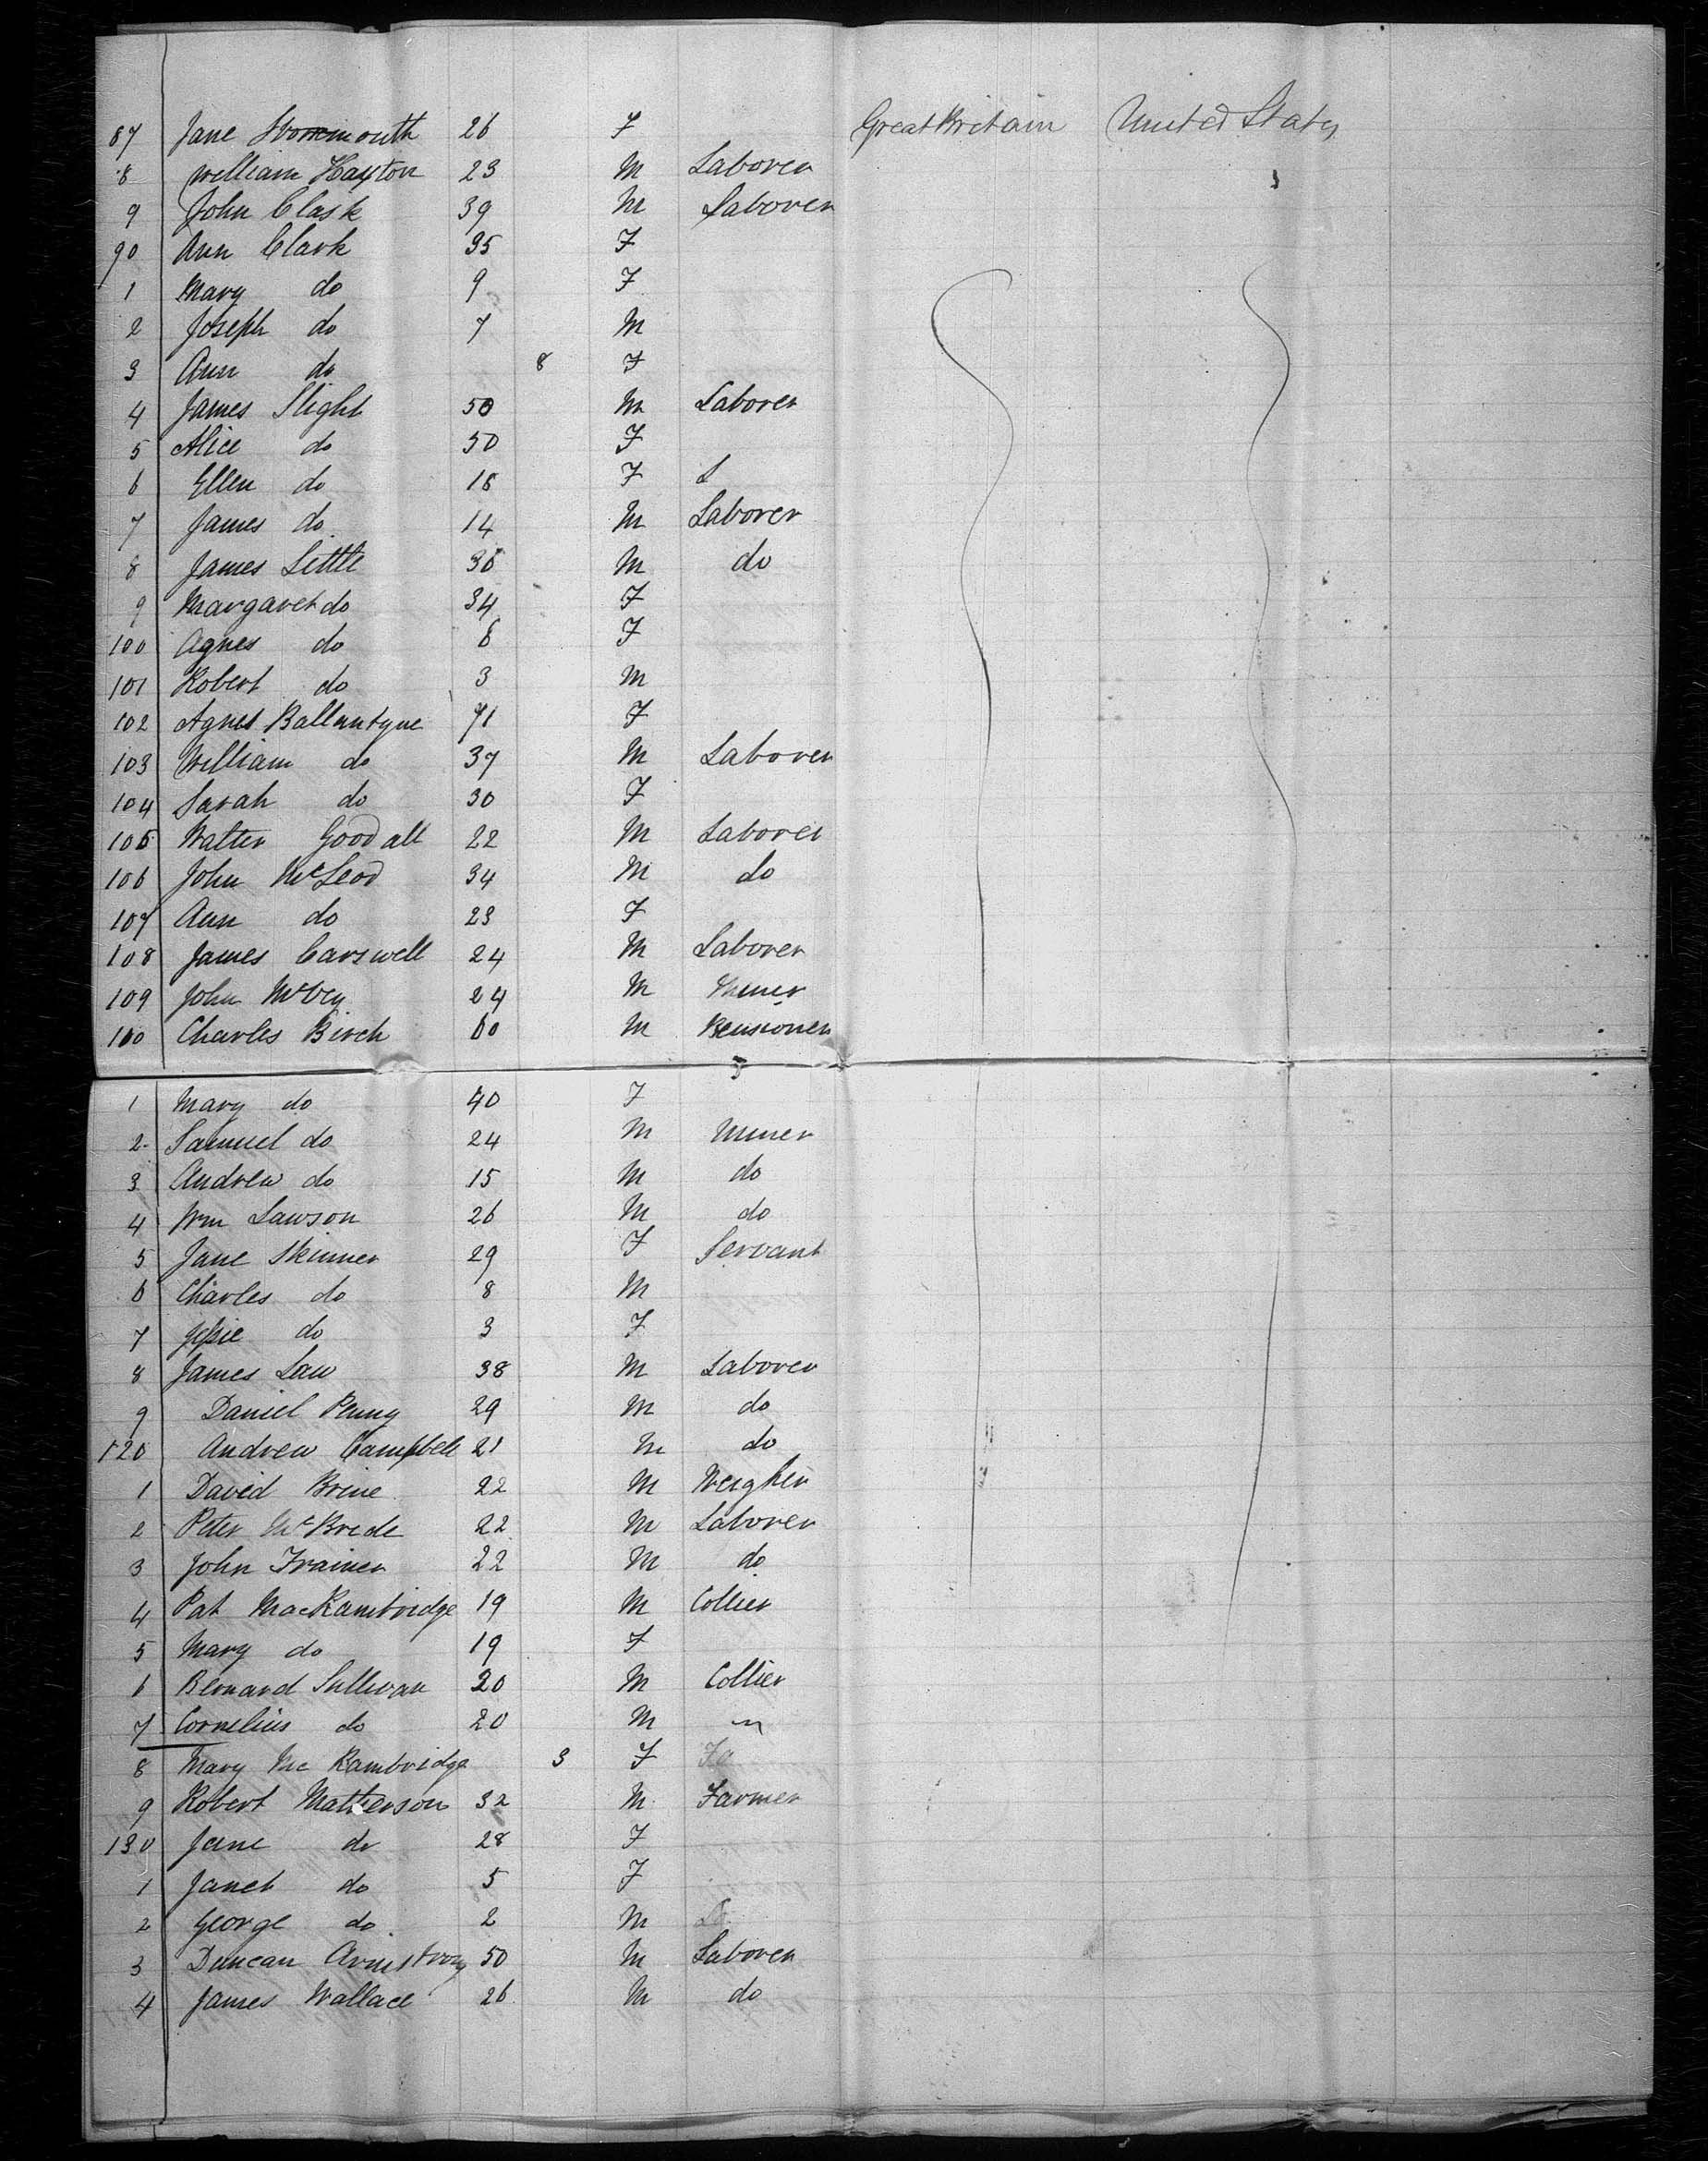 87 Jane 26 F Great Britain United States
8 William Hayton 23 M Laborer
9 John Clask 39 M Laborer
90 Ann Clark 35 F
1 Mary do 9 F
2 Joseph do 7 M
3 Ann do 8 F
4 James Slight 50 M Laborer
5 Alice do 50 F
6 Ellen do 18 F L
7 James do 14 M Laborer
8 James Little 36 M do
9 Margaret do 34 F
100 Agnes do 6 F
101 Robert do 3 M
102 Agnes Ballantyne 71 F
103 William do 37 M Laborer
104 Sarah do 30 F
105 Walter Goodall 22 M Laborer
106 John McLeod 34 M do
107 Ann do 23 F
108 James Carswell 24 M Laborer
109 John McVey 24 M Miner
110 Charles Birch 60 M Pensioner
1 Mary do 40 F
2 Samuel do 24 M Miner
3 Andrew do 15 M do
4 Wm Lawson 26 M do
5 Jane Skinner 29 F Servant
6 Charles do 8 M
7 Jessie do 3 F
8 James Law 38 M Laborer
9 Daniel Penny 29 M do
120 Andrew Campbell 21 M do
1 David Brine 22 M Weigher
2 Peter McBride 22 M Laborer
3 John Trainer 22 M do
4 Pat MacKambridge 19 M Collier
5 Mary do 19 F
6 Bernard Sullivan 20 M Collier
7 Cornelius do 20 M "
8 Mary Mc Kambridge 3 F Fa
9 Robert Matherson 32 M Farmer
130 Jane do 28 F
1 Janet do 5 F
2 George do 2 M
3 Duncan Armstrong 50 M Laborer
4 James Wallace 26 M do